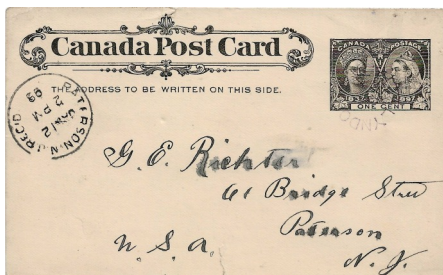 Canada Post Card
THE ADDRESS TO BE WRITTEN ON THIS SIDE.
CANADA POSTAGE
1837 1897
ONE CENT
PATERSON, N.J. REC'D
JAN 12
2 PM
99
G. E. Richter
61 Bridge Street
Paterson
N. J.
U. S. A.